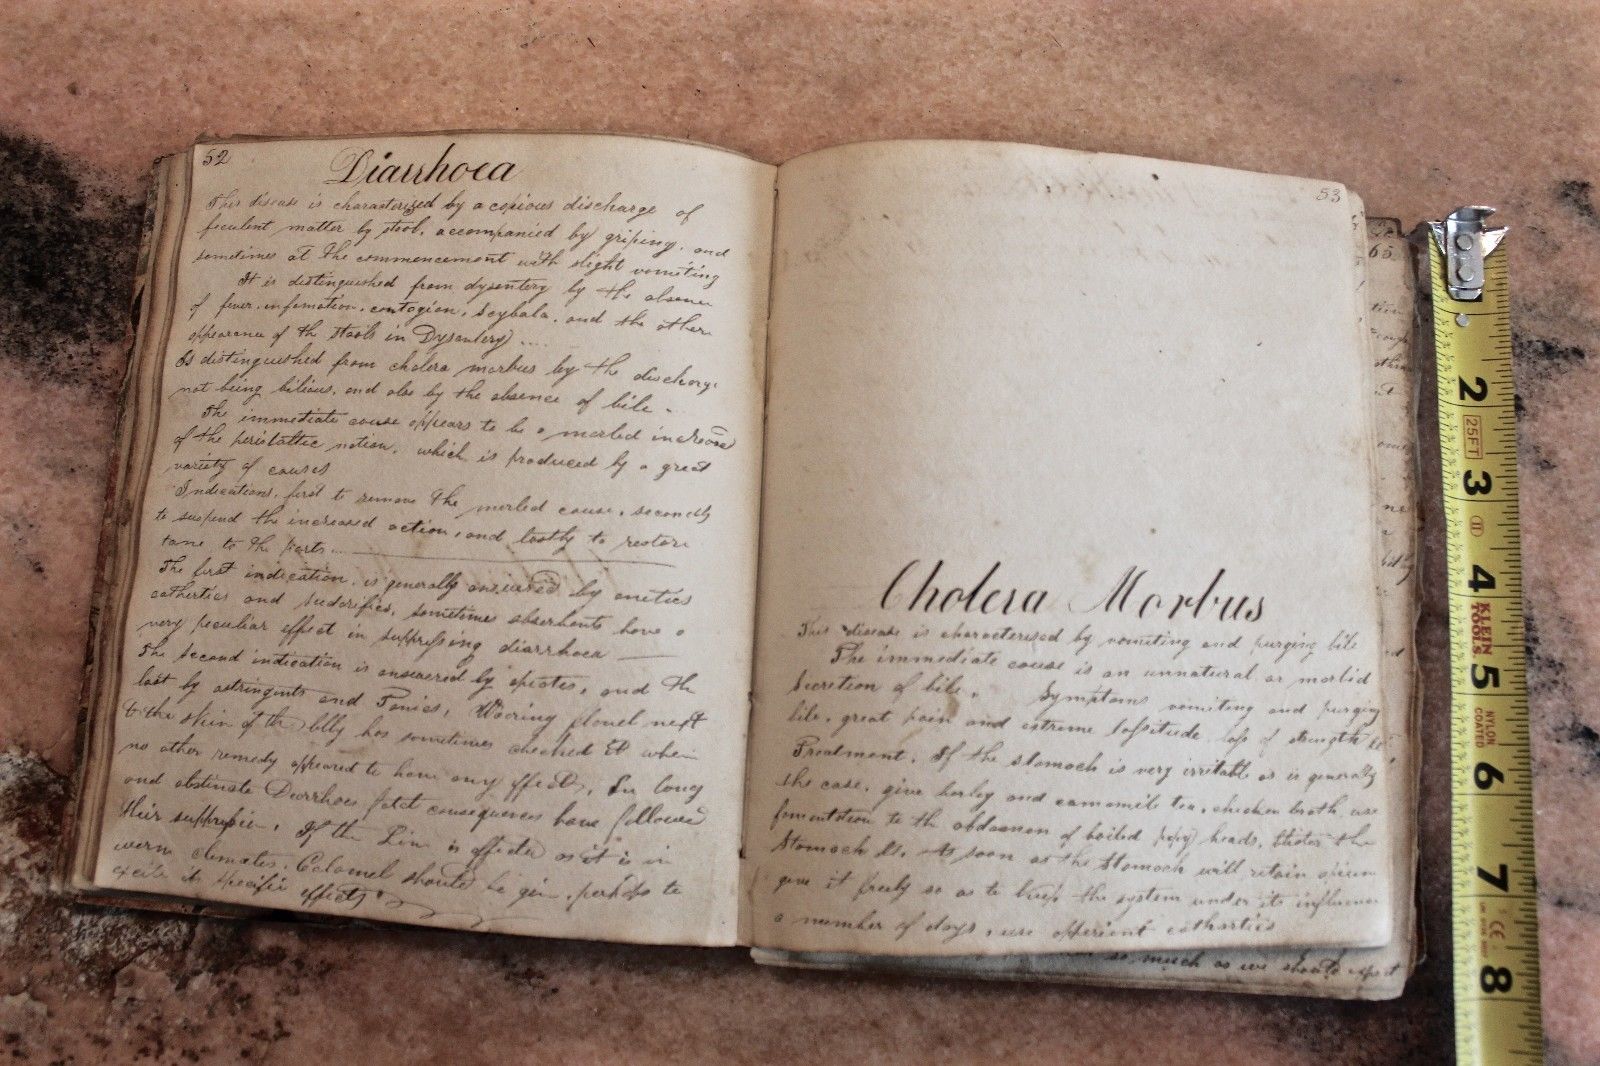 52
Diarrhoea
This disease is characterized by a copious discharge of
feculent matter by stool, accompanied by griping, and
sometimes at the commencement with slight vomiting
It is distinguished from dysentery by the absence
of fever, infamation, contagion, Scybala, and the other
appearance of the stools in Dysentery) ....
Is distinguished from cholera morbus by the discharge
not being bilious, and also by the absence of bile.
The immediate cause appears to be a morbid increased
of the peristaltic motion, which is produced by a great
variety of causes
Indications, first to remove the morbid cause, secondly
to suspend the increased action, and lastly to restore
tone to the parts ...
The first indication, is generally answered by emetics
cathertics and sudorifics, sometimes absorbents have a
very peculiar effect in suppressing diarrhoea
The second indication is answered by opiates, and the
last by astringents and Tonics, Wearing flanel next
to the skin of the belly has sometimes checked it when
no other remedy appeared to have any effect, In long
and obstinate Diarrhoea fatal consequences have followed
their suppression. If the Liver is affected as it is in
warm climates, Calomel should be given, perhaps to
excite its specific effects
53
Cholera Morbus
This disease is characterised by vomiting and purging bile
The immediate cause is an unnatural or morbid
Secretion of bile. Symptoms vomiting and purging
bile, great pain and extreme lassitude loss of strength &c
Treatment. If the stomach is very irritable as is generally
the case, give barley and camomile tea, chicken broth, use
fomentation to the abdoamon of boiled popy heads, blister the
Stomach &c. As soon as the Stomach will retain opium
give it freely so as to keep the system under its influence
a number of days, use apperient cathartics
so much as we should expect
65
2
25FT
3
4
KLEIN
TOOLS
5
NYLON
COATED
6
7
CE
8